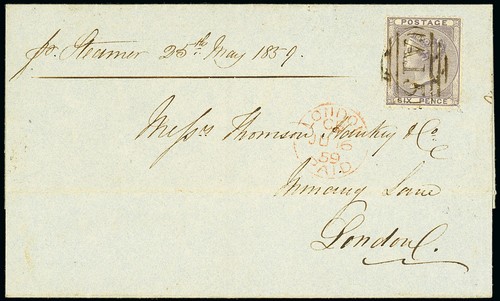 pr. Steamer 25th May 1859.
POSTAGE
SIX PENCE
LONDON
59
PAID
Messrs Thomson Hankey & Co.
Mincing Lane
London.